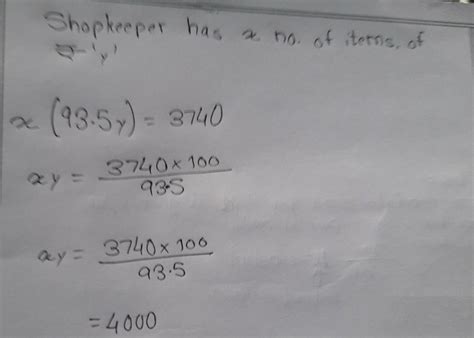 Shopkeeper has x no. of items, of
'y'
x (93.5y) = 3740
xy = 3740 x 100 / 93.5
xy = 3740 x 100 / 93.5
= 4000